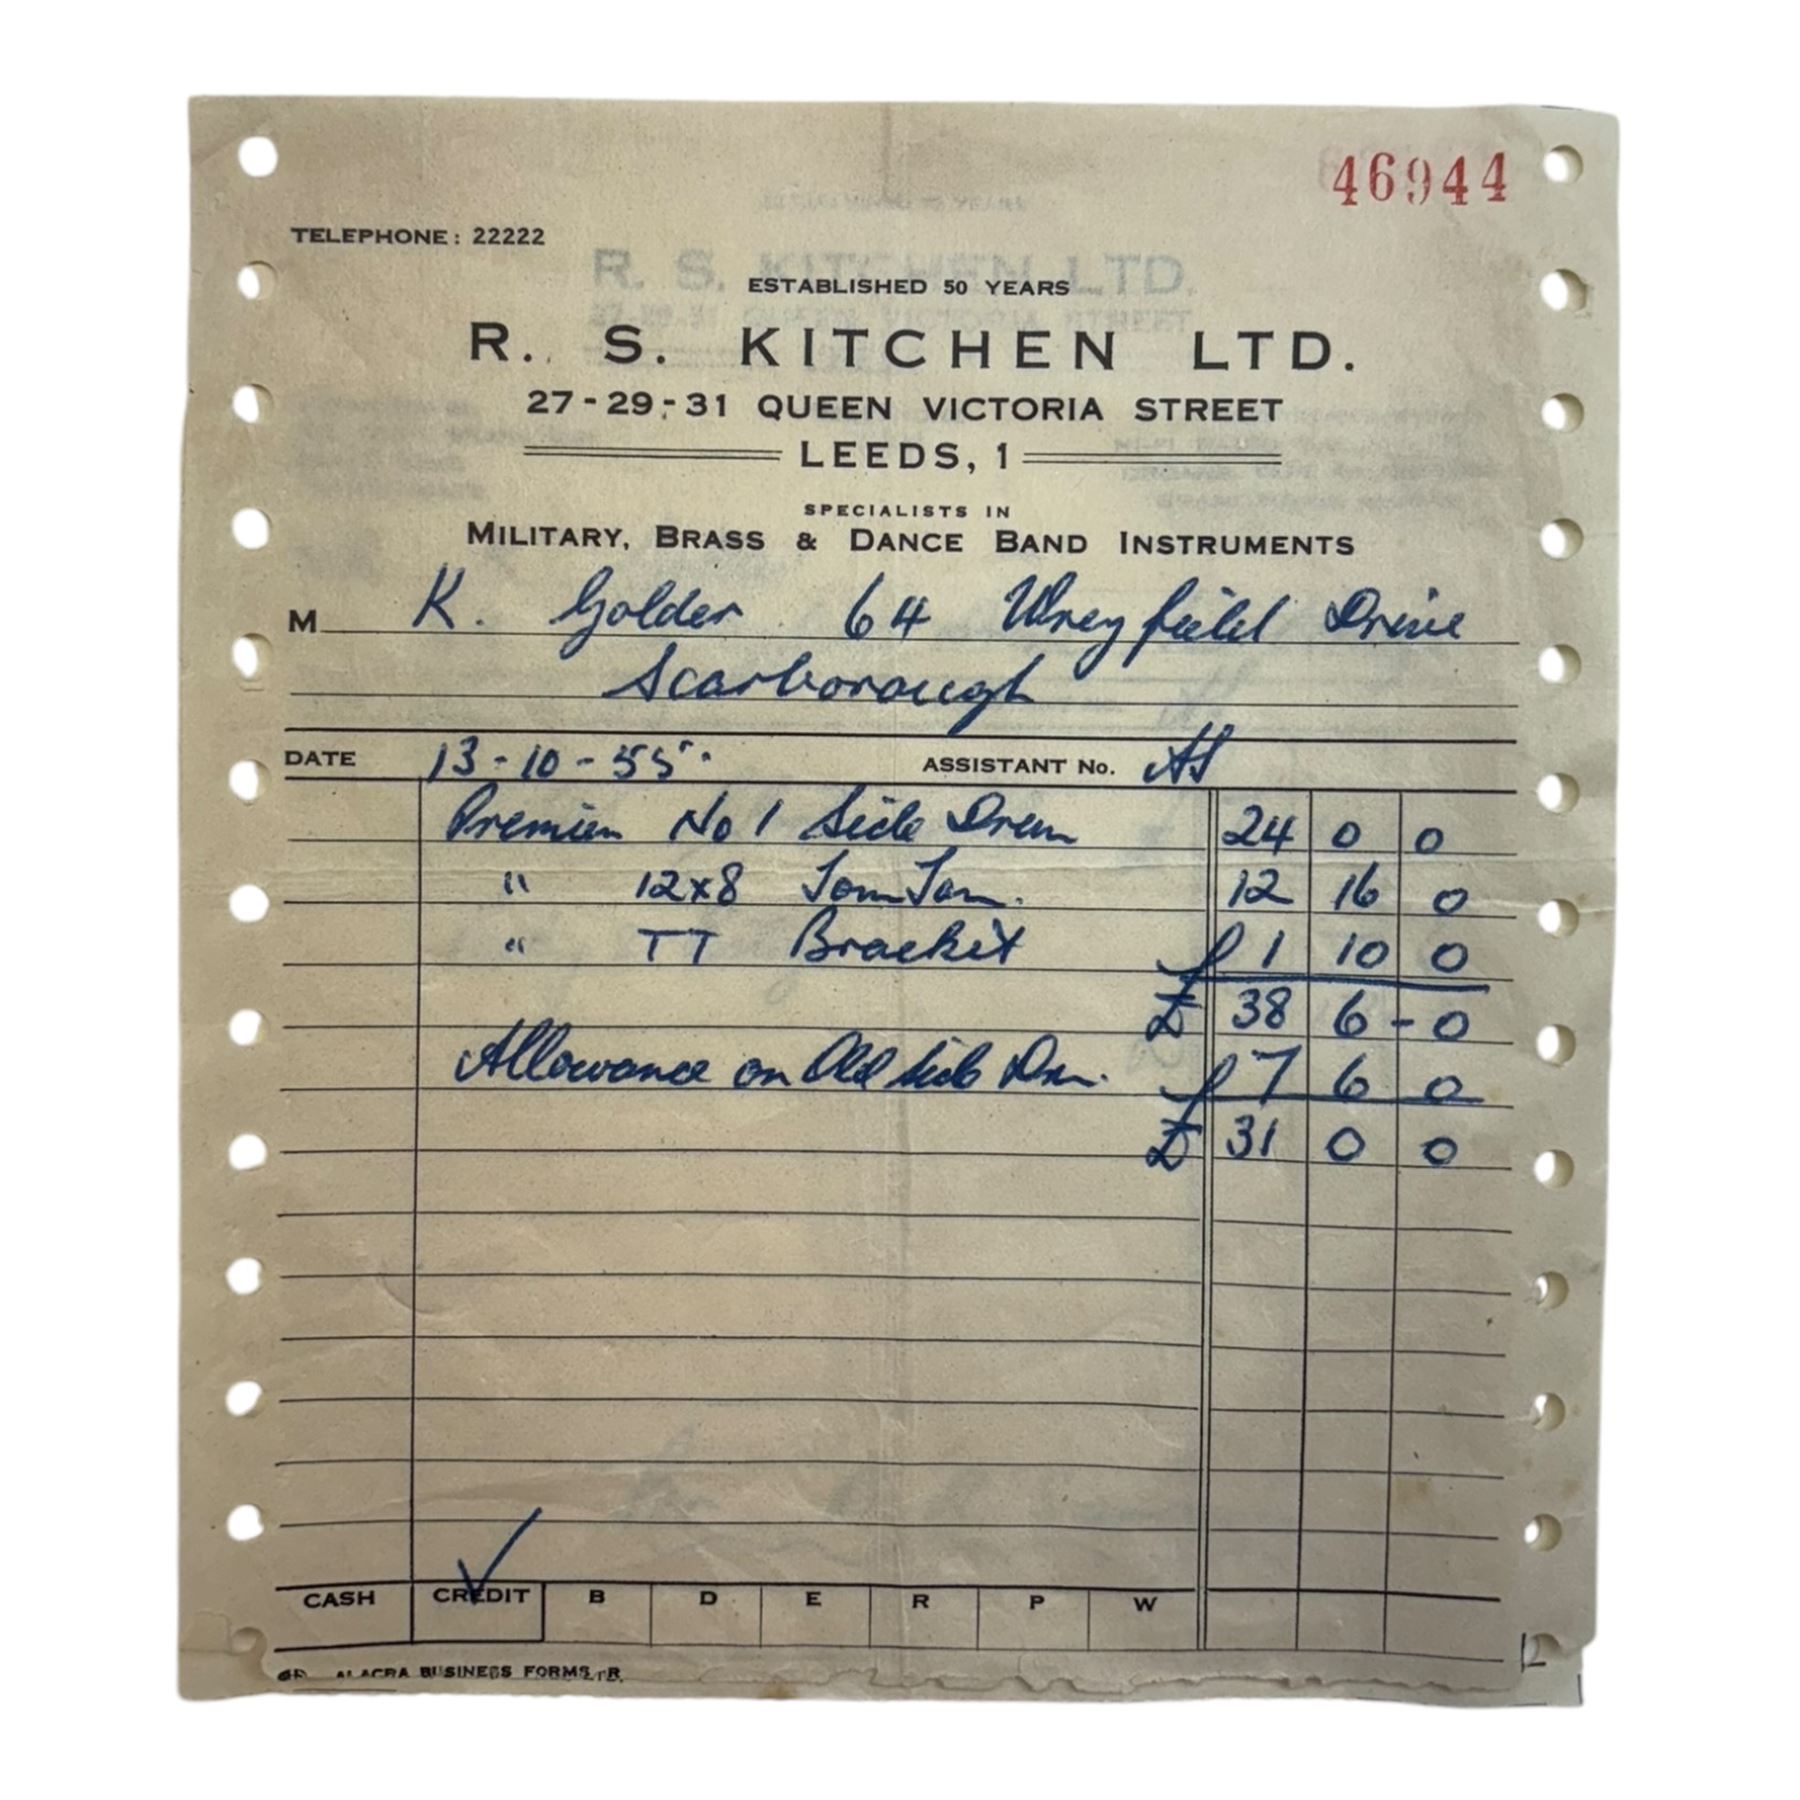 46944
TELEPHONE: 22222
ESTABLISHED 50 YEARS
R. S. KITCHEN LTD.
27-29-31 QUEEN VICTORIA STREET
LEEDS, 1
SPECIALISTS IN
MILITARY, BRASS & DANCE BAND INSTRUMENTS
M K. Golder 64 Wreyfield Drive
Scarborough
DATE 13-10-55. ASSISTANT No. AS
Premier No 1 Side Drum 24 0 0
" 12x8 Tom Tom. 12 16 0
" TT Bracket £ 1 10 0
£ 38 6 - 0
Allowance on Old Side Drm. £ 7 6 0
£ 31 0 0
CASH CREDIT B D E R P W
ALACRA BUSINESS FORMS